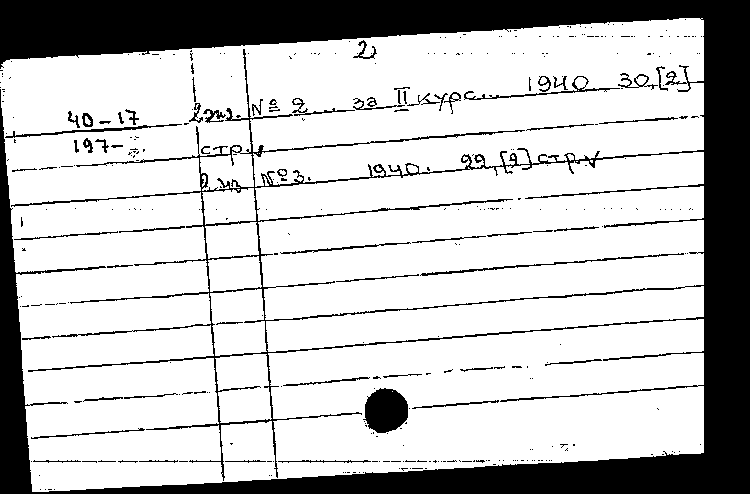 2
40-17 2 экз. № 2 ... за II курс... 1940 30,[2]
197- стр.
2 экз № 3. 1940. 22,[2] стр.